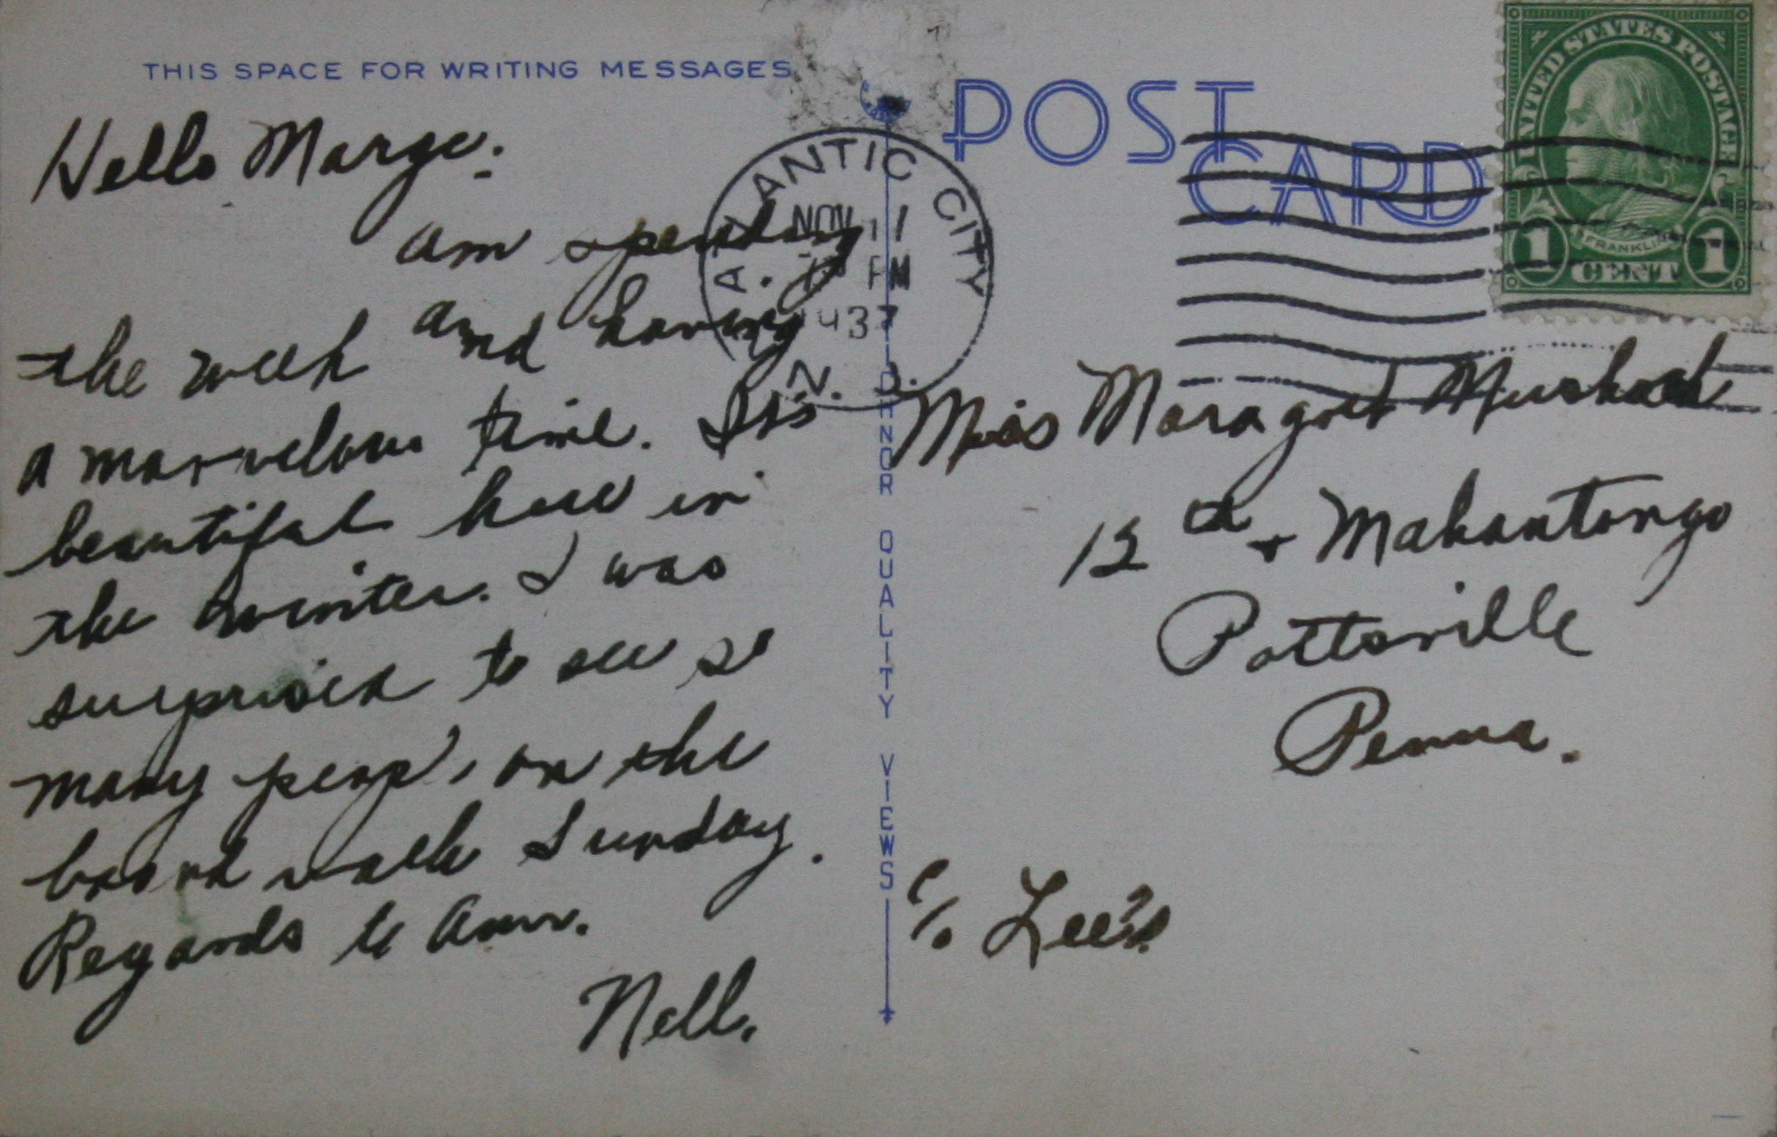 THIS SPACE FOR WRITING MESSAGES
Hello Marge:
am spending
the week and having
a marvelous time. Its
beautiful here in
the winter. I was
surprised to see so
many peop', on the
board walk Sunday.
Regards to Ann.
Nell.
POST
CARD
ATLANTIC CITY
NOV 11
PM
1937
N. J.
UNITED STATES POSTAGE
FRANKLIN
1 CENT 1
DANNOR QUALITY VIEWS
Miss
th & Mahantongo
Pottsville
Penna.
c/o Lee's